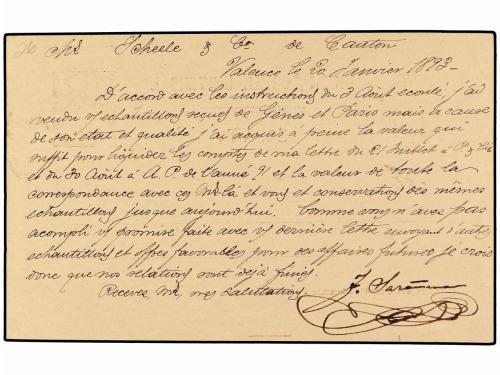 Mrs Scheele & Co de Canton
Valence le 20 Janvier 1893
D'accord avec les instructions du 3 Août ecoulé, j'ai
vendu vs echantillons reçues de Gênes et Paris mais a cause
de son etat et qualité j'ai acquis a peine la valeur qui
suffit pour liquider les comptes de ma lettre du 21 Juillet a P. & Cie
et du 30 Août à A. P. de l'année 91 et la valeur de toute la
correspondance avec ces Mrs la et vous et conservation des mêmes
echantillons jusque aujourd'hui. Comme vous n'avez pas
acompli vs promise faite avec vs dernière lettre envoyant d'autres
echantillons et offres favorables pour des affaires futures je crois
donc que nos relations sont dejà finies.
Recevez, Mrs, mes salutations